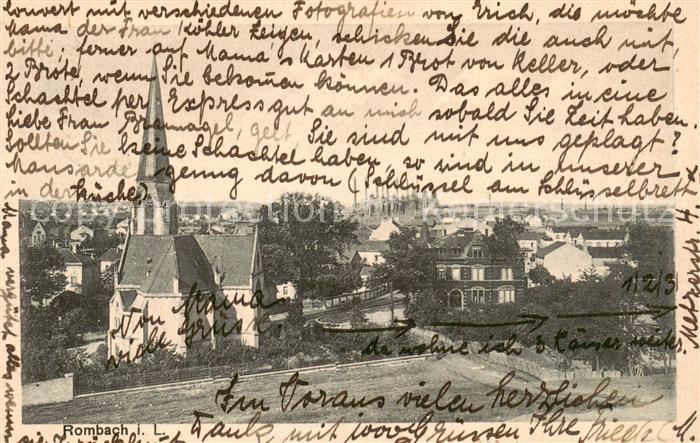 Kouvert mit verschiedenen Fotografien von Erich, die möchte
Mama der Frau Köhler zeigen, schicken Sie die auch mit,
bitte; ferner auf Mama's Karten 1 Brot von Keller, oder
2 Brote, wenn Sie bekommen können. Das alles in eine
Schachtel per Expressgut an mich sobald Sie Zeit haben.
liebe Frau gelt Sie sind mit uns geplagt?
Sollten Sie keine Schachtel haben, so sind in unserer
Mansarde genug davon (Schlüssel am Schlüsselbrett
in der Küche)
Von Mama
viele Grüsse.
1/2/3
da wohne ich 3 Häuser weiter.
Im Voraus vielen herzlichen
Rombach i. L.
Dank mit 1000 Grüssen Ihre